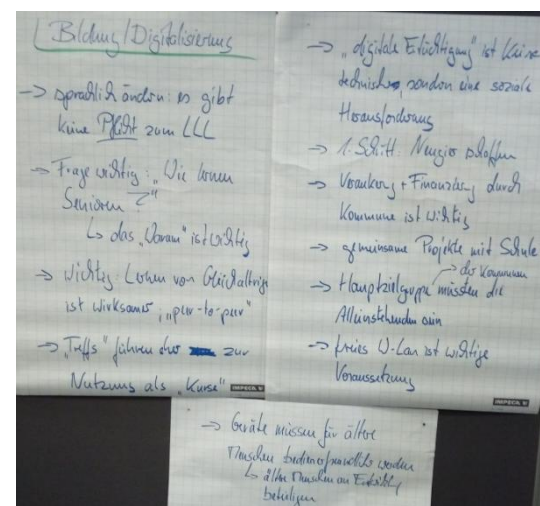 Bildung/Digitalisierung
→ sprachlich ändern: es gibt
keine Pflicht zum LLL
→ Frage wichtig: „Wie lernen
Senioren?"
↳ das „Voran" ist wichtig
→ wichtig: Lernen von Gleichaltrigen
ist wirksamer, „peer-to-peer"
→ „Treffs" führen eher zur
Nutzung als „Kurse"
IMPEGA
→ „digitale Ertüchtigung" ist keine
technische, sondern eine soziale
Herausforderung
→ 1. Schritt: Neugier schaffen
→ Verankerung + Finanzierung durch
Kommune ist wichtig
→ gemeinsame Projekte mit Schule
→ der Kommunen
→ Hauptzielgruppe müssten die
Alleinstehenden sein
→ freies W-Lan ist wichtige
Voraussetzung
IMPEGA
→ Geräte müssen für ältere
Menschen bedienerfreundlich werden
↳ ältere Menschen an Entwicklung
beteiligen